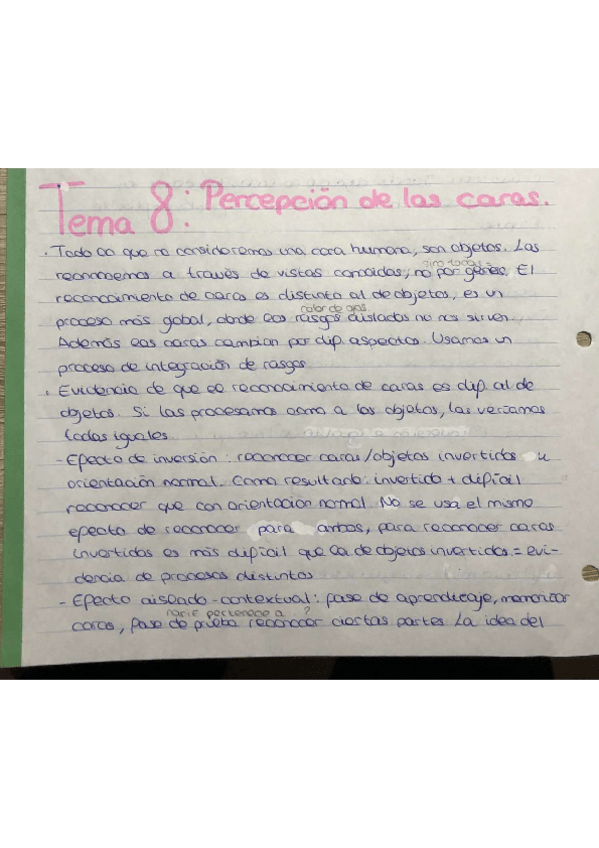 Tema 8: Percepción de las caras.
· Todo lo que no consideremos una cara humana, son objetos. Las
sino todas =
reconocemos a través de vistas conocidas, no por génesis. El
reconocimiento de caras es distinto al de objetos, es un
color de ojos
proceso más global, donde los rasgos aislados no nos sirven.
Además las caras cambian por dif. aspectos. Usamos un
proceso de integración de rasgos
· Evidencia de que el reconocimiento de caras es dif. al de
objetos. Si las procesamos como a los objetos, las veríamos
todas iguales
- Efecto de inversión: reconocer caras/objetos invertidos u
orientación normal. Como resultado: invertido + difícil
reconocer que con orientación normal. No se usa el mismo
efecto de reconocer para ambos, para reconocer caras
invertidas es más difícil que la de objetos invertidos. = evi-
dencia de procesos distintos
- Efecto aislado-contextual: fase de aprendizaje, memorizar
nariz pertenece a...?
caras, fase de prueba reconocer ciertas partes. La idea del